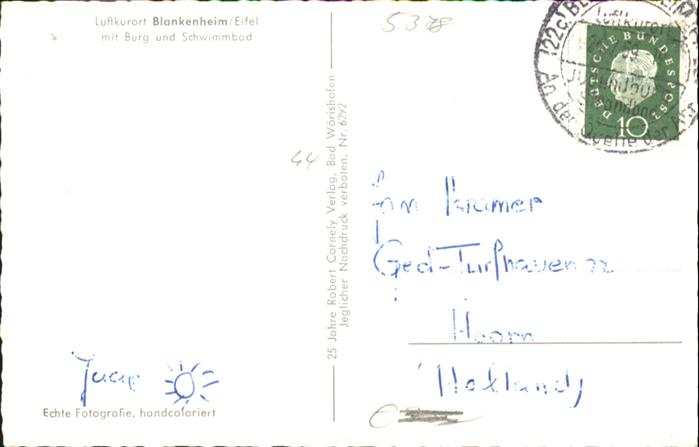 Luftkurort Blankenheim/Eifel
mit Burg und Schwimmbad
5378
44
25 Jahre Robert Cornely Verlag, Bad Wörishofen
Jeglicher Nachdruck verboten. Nr. 6292
DEUTSCHE BUNDESPOST
10
(22c) BLANKENHEIM
Luftkurort
An der Quelle der Ahr
Fam Kramer
Ged-Turfhaven 22
Hoorn
Holland
Jaap
Echte Fotografie, handcoloriert